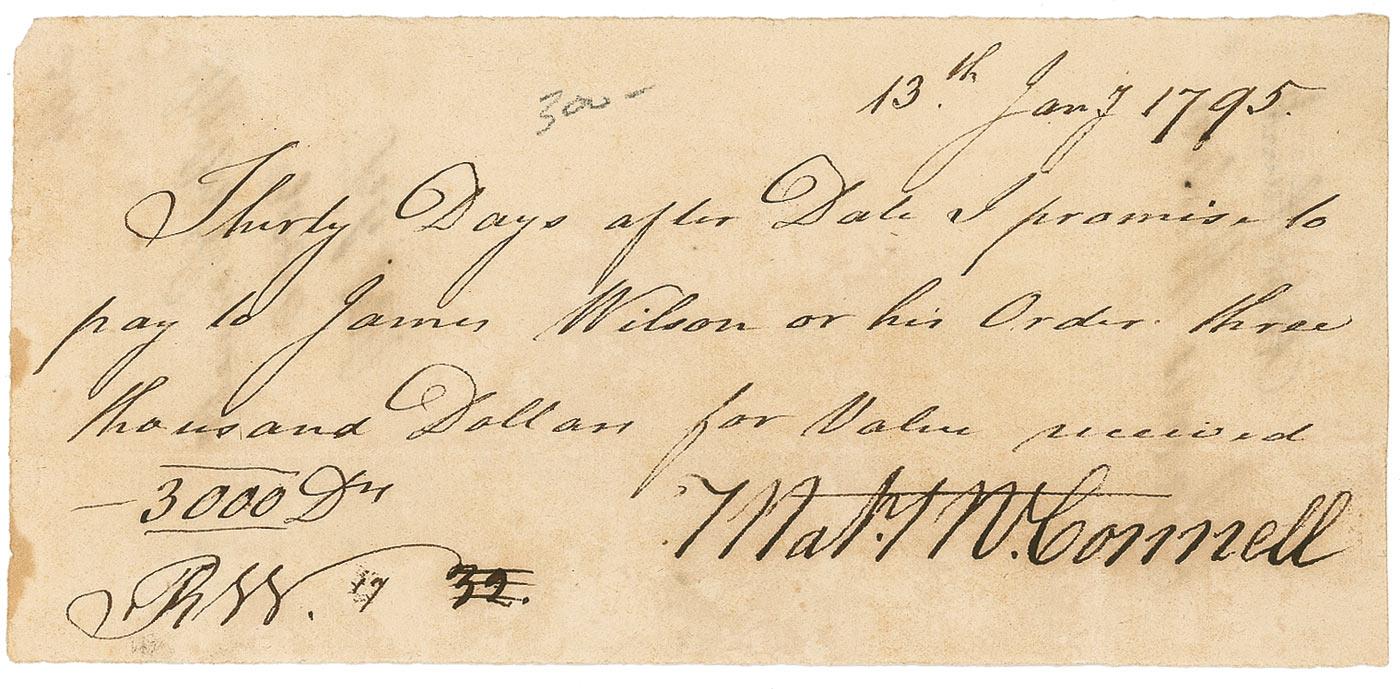 300 -
13th Jany 1795.
Thirty Days after Date I promise to
pay to James Wilson or his Order three
thousand Dollars for Value received
- 3000 Drs
Mat. McConnell
RW. 17 32.